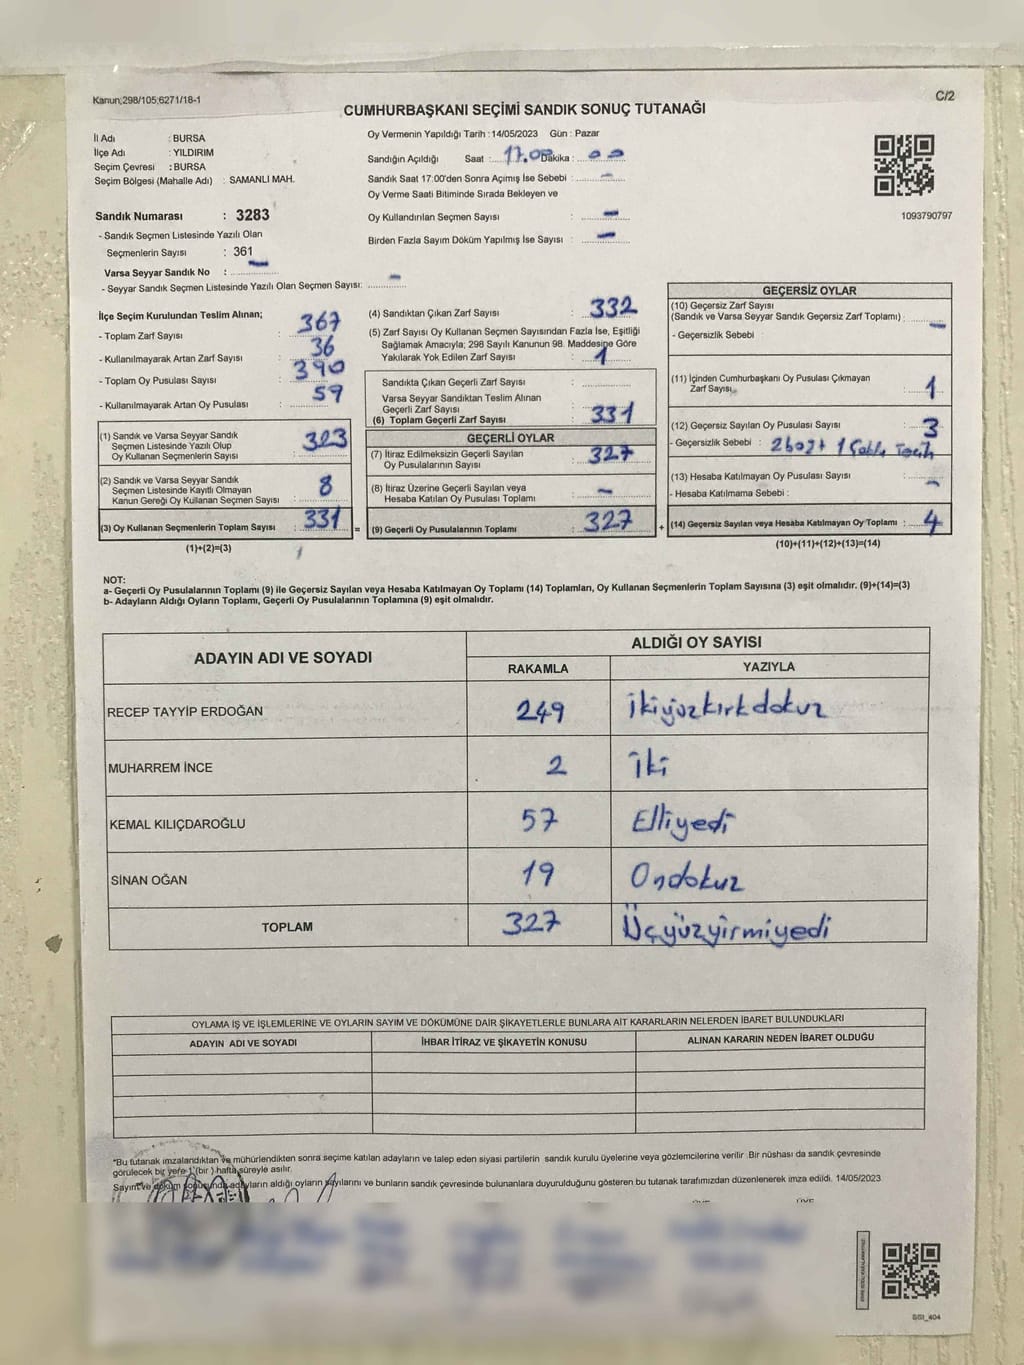 Kanun;298/105;6271/18-1
C/2
CUMHURBAŞKANI SEÇİMİ SANDIK SONUÇ TUTANAĞI
İl Adı : BURSA
İlçe Adı : YILDIRIM
Seçim Çevresi : BURSA
Seçim Bölgesi (Mahalle Adı) : SAMANLI MAH.
Sandık Numarası : 3283
- Sandık Seçmen Listesinde Yazılı Olan
Seçmenlerin Sayısı : 361
Varsa Seyyar Sandık No : -
- Seyyar Sandık Seçmen Listesinde Yazılı Olan Seçmen Sayısı: -
Oy Vermenin Yapıldığı Tarih : 14/05/2023 Gün : Pazar
Sandığın Açıldığı Saat : 17.00 Dakika : 00
Sandık Saat 17:00'den Sonra Açılmış İse Sebebi : -
Oy Verme Saati Bitiminde Sırada Bekleyen ve
Oy Kullandırılan Seçmen Sayısı : -
Birden Fazla Sayım Döküm Yapılmış İse Sayısı : -
1093790797
İlçe Seçim Kurulundan Teslim Alınan;
- Toplam Zarf Sayısı : 367
- Kullanılmayarak Artan Zarf Sayısı : 36
- Toplam Oy Pusulası Sayısı : 390
- Kullanılmayarak Artan Oy Pusulası : 59
(1) Sandık ve Varsa Seyyar Sandık
Seçmen Listesinde Yazılı Olup
Oy Kullanan Seçmenlerin Sayısı : 323
(2) Sandık ve Varsa Seyyar Sandık
Seçmen Listesinde Kayıtlı Olmayan
Kanun Gereği Oy Kullanan Seçmen Sayısı : 8
(3) Oy Kullanan Seçmenlerin Toplam Sayısı : 331 =
(1)+(2)=(3)
(4) Sandıktan Çıkan Zarf Sayısı : 332
(5) Zarf Sayısı Oy Kullanan Seçmen Sayısından Fazla İse, Eşitliği
Sağlamak Amacıyla; 298 Sayılı Kanunun 98. Maddesine Göre
Yakılarak Yok Edilen Zarf Sayısı : 1
Sandıkta Çıkan Geçerli Zarf Sayısı :
Varsa Seyyar Sandıktan Teslim Alınan
Geçerli Zarf Sayısı :
(6) Toplam Geçerli Zarf Sayısı : 331
GEÇERLİ OYLAR
(7) İtiraz Edilmeksizin Geçerli Sayılan
Oy Pusulalarının Sayısı : 327
(8) İtiraz Üzerine Geçerli Sayılan veya
Hesaba Katılan Oy Pusulası Toplamı : -
(9) Geçerli Oy Pusulalarının Toplamı : 327 +
GEÇERSİZ OYLAR
(10) Geçersiz Zarf Sayısı
(Sandık ve Varsa Seyyar Sandık Geçersiz Zarf Toplamı) : -
- Geçersizlik Sebebi :
(11) İçinden Cumhurbaşkanı Oy Pusulası Çıkmayan
Zarf Sayısı : 1
(12) Geçersiz Sayılan Oy Pusulası Sayısı : 3
- Geçersizlik Sebebi : 2 boş + 1
(13) Hesaba Katılmayan Oy Pusulası Sayısı : -
- Hesaba Katılmama Sebebi :
(14) Geçersiz Sayılan veya Hesaba Katılmayan Oy Toplamı : 4
(10)+(11)+(12)+(13)=(14)
NOT:
a- Geçerli Oy Pusulalarının Toplamı (9) ile Geçersiz Sayılan veya Hesaba Katılmayan Oy Toplamı (14) Toplamları, Oy Kullanan Seçmenlerin Toplam Sayısına (3) eşit olmalıdır. (9)+(14)=(3)
b- Adayların Aldığı Oyların Toplamı, Geçerli Oy Pusulalarının Toplamına (9) eşit olmalıdır.
ADAYIN ADI VE SOYADI
ALDIĞI OY SAYISI
RAKAMLA YAZIYLA
RECEP TAYYİP ERDOĞAN 249 İkiyüzkırkdokuz
MUHARREM İNCE 2 İki
KEMAL KILIÇDAROĞLU 57 Elliyedi
SİNAN OĞAN 19 Ondokuz
TOPLAM 327 Üçyüzyirmiyedi
OYLAMA İŞ VE İŞLEMLERİNE VE OYLARIN SAYIM VE DÖKÜMÜNE DAİR ŞİKAYETLERLE BUNLARA AİT KARARLARIN NELERDEN İBARET BULUNDUKLARI
ADAYIN ADI VE SOYADI İHBAR İTİRAZ VE ŞİKAYETİN KONUSU ALINAN KARARIN NEDEN İBARET OLDUĞU
"Bu tutanak imzalandıktan ve mühürlendikten sonra seçime katılan adayların ve talep eden siyasi partilerin sandık kurulu üyelerine veya gözlemcilerine verilir. Bir nüshası da sandık çevresinde
görülecek bir yere 1 (bir ) hafta süreyle asılır.
Sayım ve döküm sonucunda adayların aldığı oyların sayılarını ve bunların sandık çevresinde bulunanlara duyurulduğunu gösteren bu tutanak tarafımızdan düzenlenerek imza edildi. 14/05/2023
SS1_404